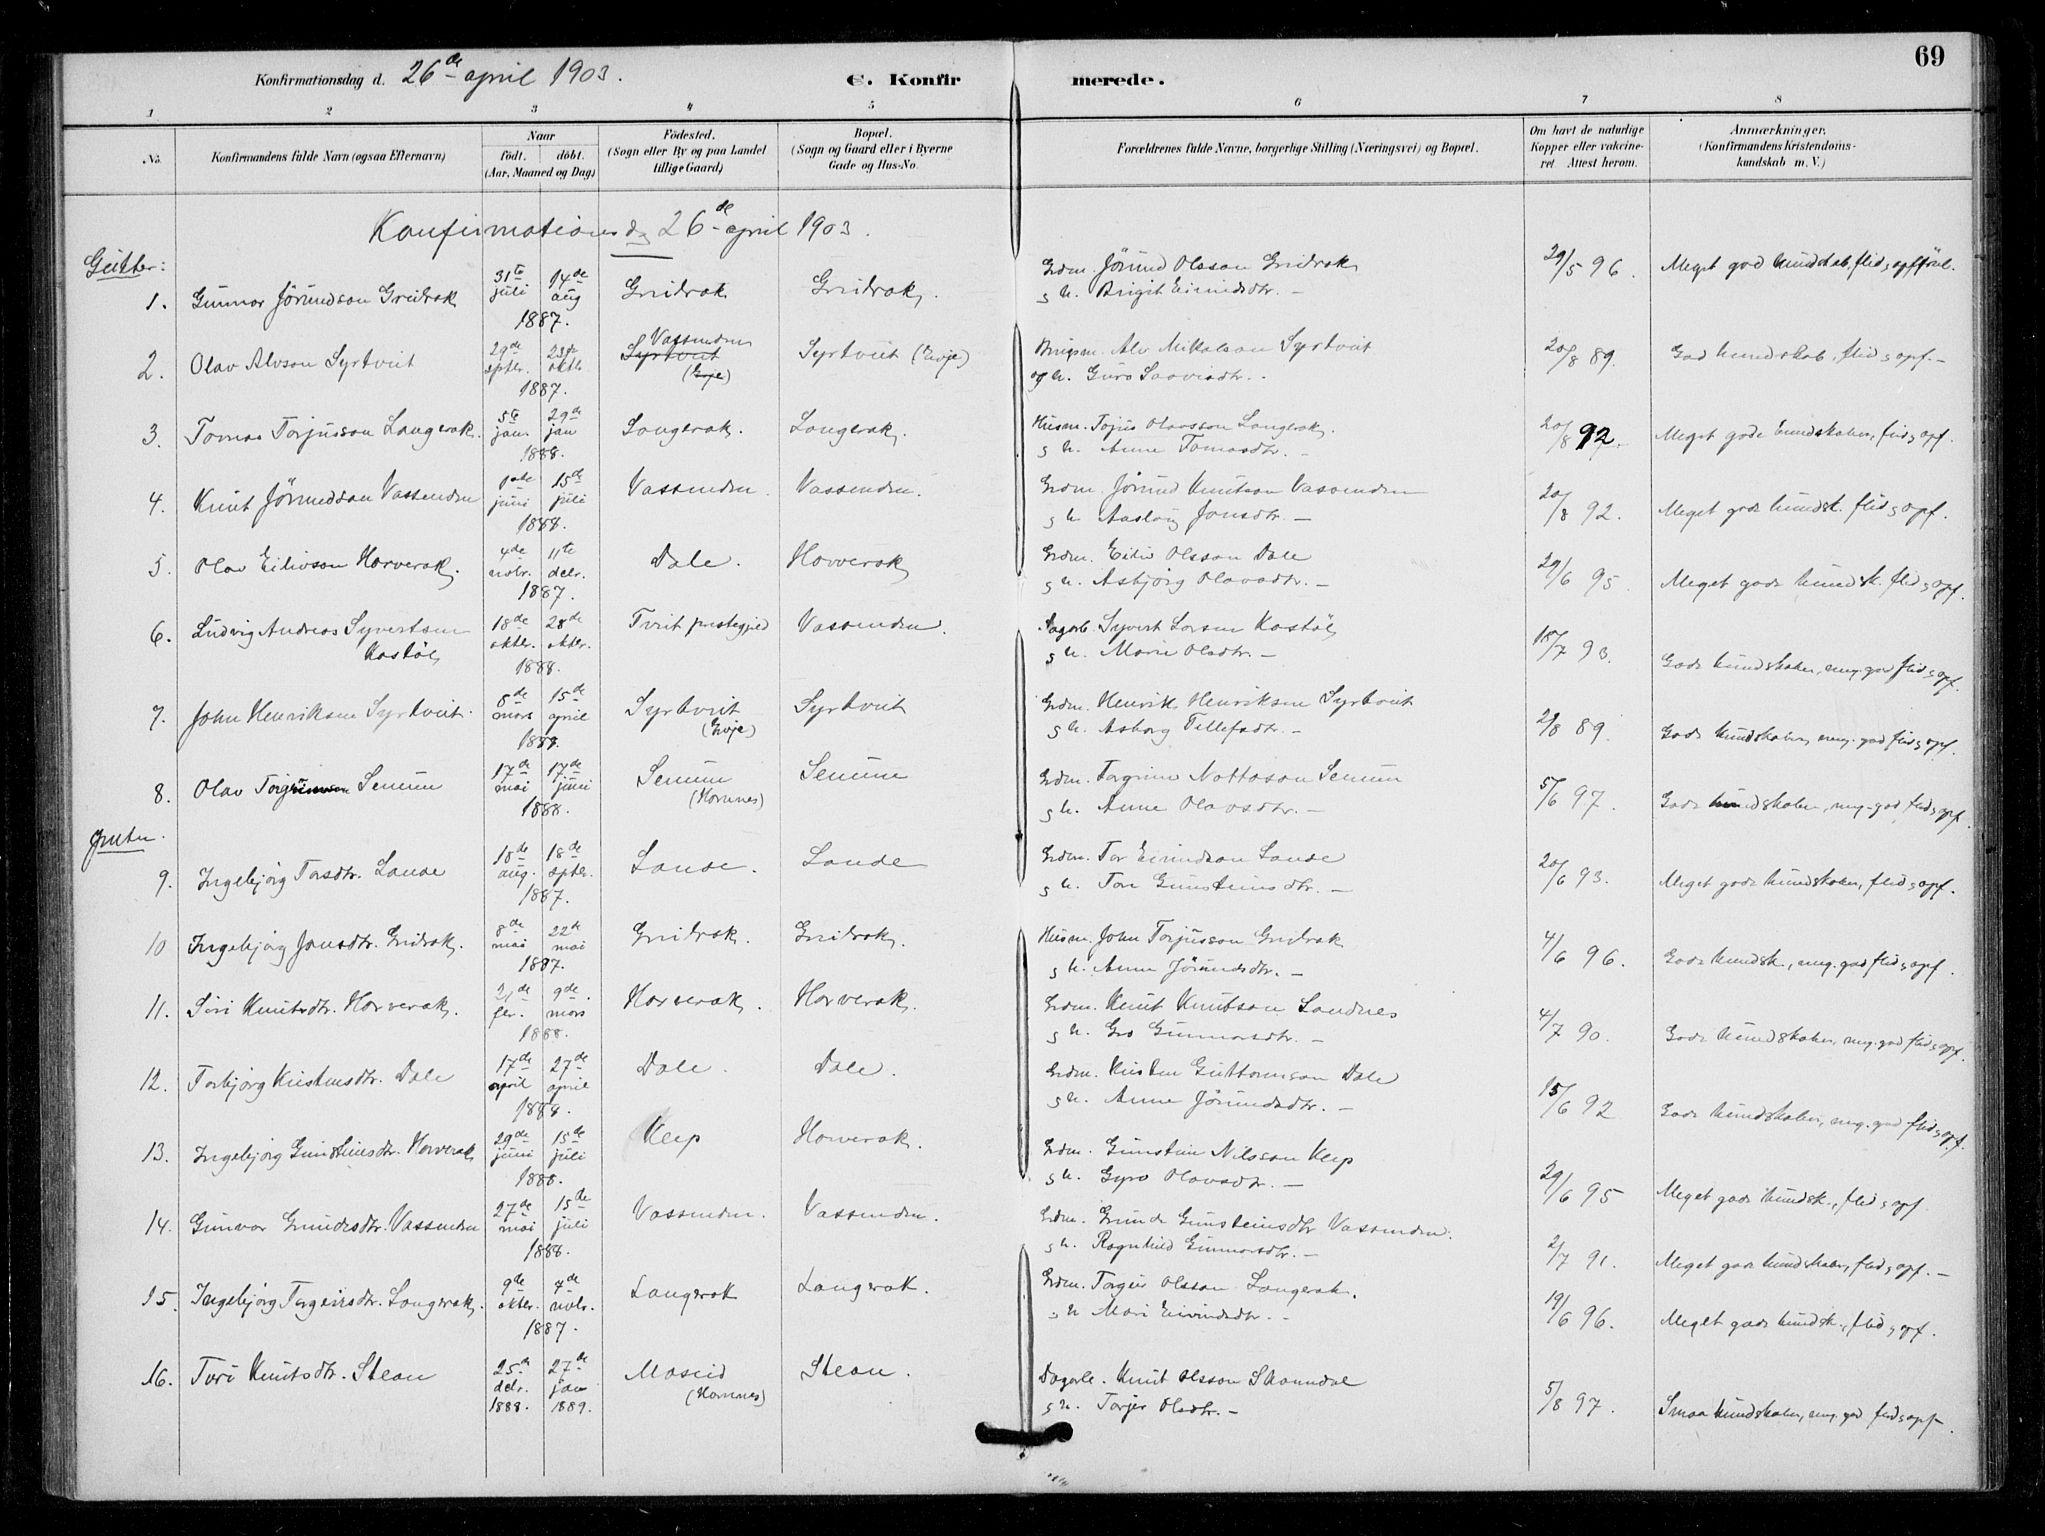 69
Konfirmationsdag d. 26de april 1903.
C. Konfirmerede.
1 2 3 4 5 6 7 8
No.
Konfirmandens fulde Navn (ogsaa Efternavn)
Naar
födt. döbt.
(Aar, Maaned og Dag)
Födested.
(Sogn eller By og paa Landet
tillige Gaard)
Bopæl.
(Sogn og Gaard eller i Byerne
Gade og Hus-No.
Forældrenes fulde Navne, borgerlige Stilling (Næringsvei) og Bopæl.
Om havt de naturlige
Kopper eller vakcine-
ret Attest herom.
Anmærkninger,
(Konfirmandens Kristendoms-
kundskab m. V.)
Konfirmationsdg 26de april 1903.
Gutter:
1. Gunnar Jörundson Greibrok 31te juli 14de aug 1887. Greibrok Greibrok. Grdm. Jörund Olsson Greibrok 29/5 96. Meget god kundskab, flid, opförsel.
g h. Birgit Eivindsdtr. –
2. Olav Alvson Syrtveit 29de septbr. 23de oktbr. 1887. Vassenden Syrtveit (Evje) Syrtveit (Evje) Brugsm. Alv Mikalson Syrtveit 20/8 89. God kundskab, flid g opf. –
og h. Guro Saavesdtr. -
3. Tomas Torjusson Langerak. 5te jan. 29de jan 1888. Langerak. Langerak. Husm. Tojus Olavsson Langerak. 20/8 92. Meget gode kundskaber, flid g opf.
g h. Anne Tomasdtr. –
4. Knut Jörundson Vassenden juni 15de juli 1888. Vassenden. Vassenden. Grdm. Jörund Knutson Vassenden 20/8 92. Meget gode kundsk. flid g opf.
g h Aaslaug Jonsdtr. –
5. Olav Eilivson Horverak. 4de novbr. 11te decbr. 1887. Dale. Horverak Grdm. Eiliv Olsson Dale 29/6 95. Meget gode kundsk. flid g opf.
g h. Asbjörg Olavsdtr. –
6. Ludvig Andreas Syvertsen Kostöl 18de oktbr. 28de oktbr. 1888. Tveit prestegjeld Vassenden. Sagarb. Syvert Larsen Kostöl 18/7 93. Gode kundskaber, meg. god flid g opf.
g h. Marie Olsdtr. –
7. John Henriksen Syrtveit. 8de mars 15de april 1888. Syrtveit (Evje) Syrtveit Grdm. Henrik Henriksen Syrtveit 2/8 89. Gode kundskaber, meg. god flid g opf.
g h. Asborg Tellefsdtr. –
8. Olav Torgrimson Senum 17de mai 17de juni 1888. Senum (Hornnes) Senum Grdm. Torgrim Nottoson Senum 5/6 97. Gode kundskaber, meg. god flid g opf.
g h. Anne Olavsdtr. –
Jenter.
9. Ingebjörg Torsdtr. Lande 18de aug. 18de septbr. 1887. Lande. Lande Grdm. Tor Eivindson Lande 20/6 93. Meget gode kundskaber, flid g opf.
g h. Tone Gunsteinsdtr. –
10 Ingebjörg Jonsdtr. Greibrok. 8de mai 22de mai 1887. Greibrok. Greibrok. Husm. John Torjusson Greibrok 4/6 96. Gode kundsk., meg. god flid g opf.
g h. Anne Jörundsdtr. –
11. Siri Knutsdtr. Horverak. 21de feb. 9de mars 1888. Horverak. Horverak. Grdm. Knut Knutson Landnes 4/7 90. Gode kundskaber, meg. god flid g opf.
g h. Gro Gunnarsdtr. –
12. Torbjörg Kristensdtr. Dale 17de april 27de april 1888. Dale. Dale. Grdm. Kristen Guttormson Dale 15/6 92 Gode kundskaber, meg. god flid g opf.
g h. Anne Jörundsdtr. –
13. Ingebjörg Gunsteinsdtr. Horverak 29de juni 15de juli 1888. Klep Horverak. Grdm. Gunstein Nilsson Klep 29/6 95 Meget gode kundsk., flid g opf.
g h. Gyro Olavsdtr. –
14. Gunvor Grundesdtr. Vassenden 27de mai 15de juli 1888. Vassenden. Vassenden. Grdm. Grunde Gunsteinsdtr Vassenden. 2/7 91. Meget gode kundskaber, flid g opf. –
g h. Ragnhild Gunnarsdtr. –
15. Ingebjörg Torgeirsdtr. Langerak. 9de oktbr. 4de novbr. 1887. Langerak Langerak. Grdm. Torgeir Olsson Langerak. 19/6 96. Meget gode kundsk., flid g opf.
g h Mari Eivindsdtr. –
16. Turi Knutsdtr. Stean 25de decbr. 1888. 27de jan 1889. Moseid (Hornnes) Stean. Dagarb. Knut Olsson Skomdal 5/8 97. Smaa kundskaber, meg. god flid g opf.
g h. Torjer Olsdtr. –